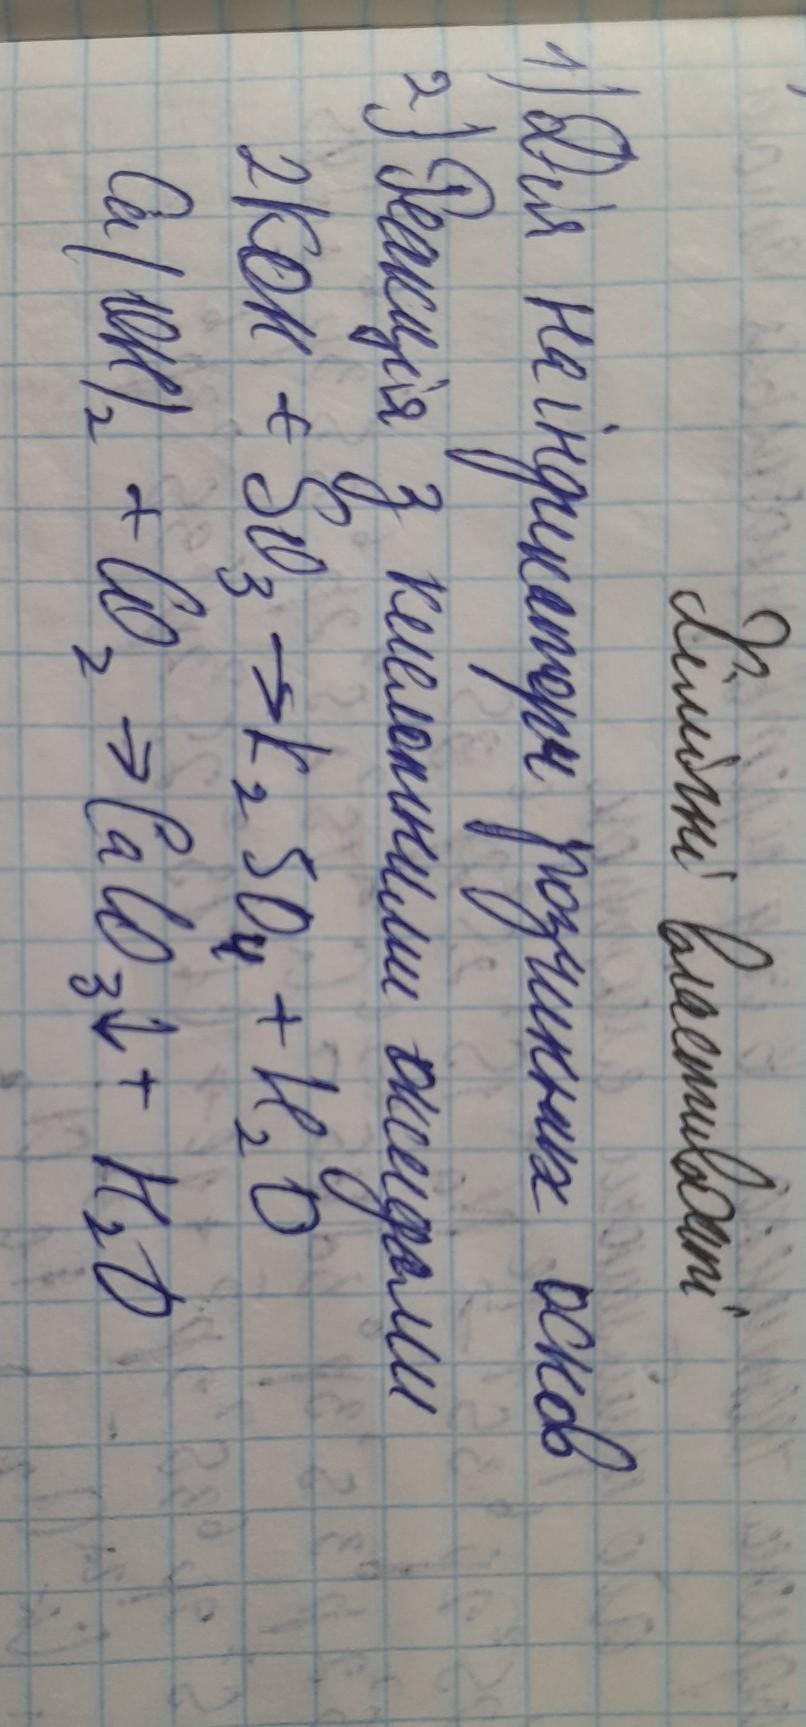 Хімічні властивості
1) Дія на індикатори розчинних основ
2) Реакція з кислотними оксидами
2KOH + SO3 → K2SO4 + H2O
Ca(OH)2 + CO2 → CaCO3↓ + H2O